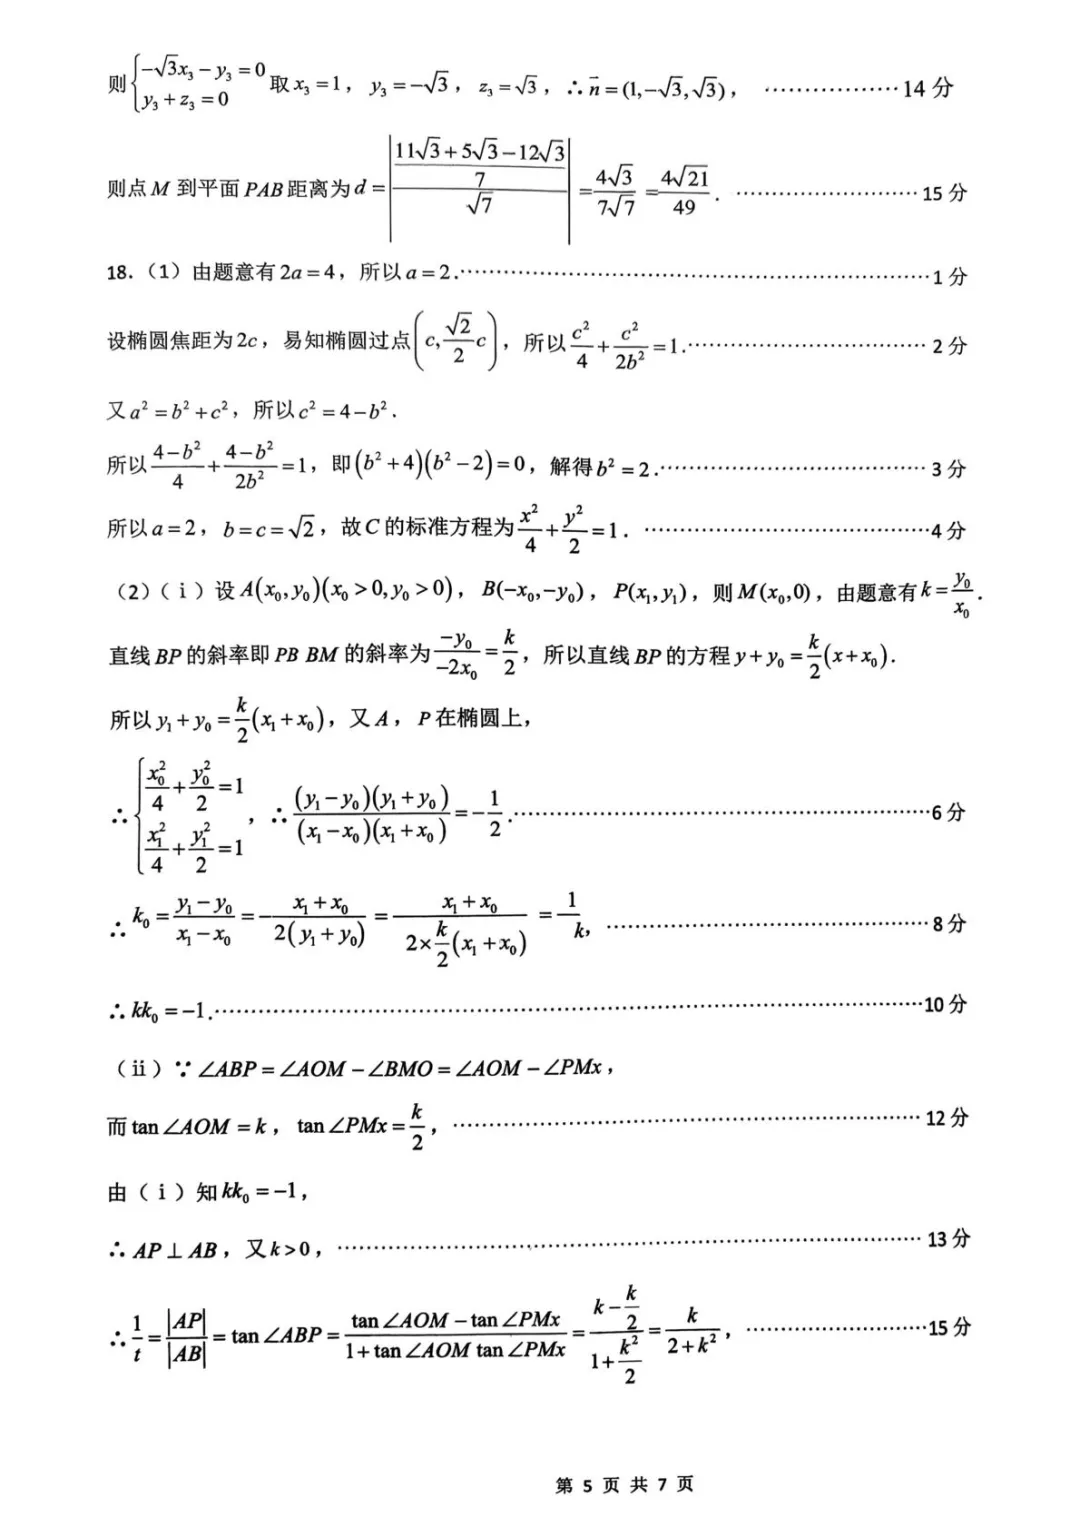 则{-√3x₃-y₃=0, y₃+z₃=0 取 x₃=1，y₃=-√3，z₃=√3，∴n⃗=(1,-√3,√3)，………………14 分
则点 M 到平面 PAB 距离为 d=|((11√3+5√3-12√3)/7)/√7|=4√3/(7√7)=4√21/49．………………15 分
18.（1）由题意有 2a=4，所以 a=2.………………1 分
设椭圆焦距为 2c，易知椭圆过点(c, (√2/2)c)，所以 c²/4+c²/(2b²)=1.………………2 分
又 a²=b²+c²，所以 c²=4-b²．
所以 (4-b²)/4+(4-b²)/(2b²)=1，即(b²+4)(b²-2)=0，解得 b²=2.………………3 分
所以 a=2，b=c=√2，故 C 的标准方程为 x²/4+y²/2=1．………………4 分
（2）（ⅰ）设 A(x₀,y₀)(x₀>0,y₀>0)，B(-x₀,-y₀)，P(x₁,y₁)，则 M(x₀,0)，由题意有 k=y₀/x₀．
直线 BP 的斜率即 PB BM 的斜率为 -y₀/(-2x₀)=k/2，所以直线 BP 的方程 y+y₀=(k/2)(x+x₀)．
所以 y₁+y₀=(k/2)(x₁+x₀)，又 A，P 在椭圆上，
∴{x₀²/4+y₀²/2=1, x₁²/4+y₁²/2=1，∴(y₁-y₀)(y₁+y₀)/((x₁-x₀)(x₁+x₀))=-1/2.………………6 分
∴k₀=(y₁-y₀)/(x₁-x₀)=-(x₁+x₀)/(2(y₁+y₀))=(x₁+x₀)/(2×(k/2)(x₁+x₀))=1/k，………………8 分
∴kk₀=-1.………………10 分
（ⅱ）∵∠ABP=∠AOM-∠BMO=∠AOM-∠PMx，
而 tan∠AOM=k，tan∠PMx=k/2，………………12 分
由（ⅰ）知 kk₀=-1，
∴AP⊥AB，又 k>0，………………13 分
∴1/t=|AP|/|AB|=tan∠ABP=(tan∠AOM-tan∠PMx)/(1+tan∠AOM tan∠PMx)=(k-k/2)/(1+k²/2)=k/(2+k²)，………………15 分
第 5 页 共 7 页